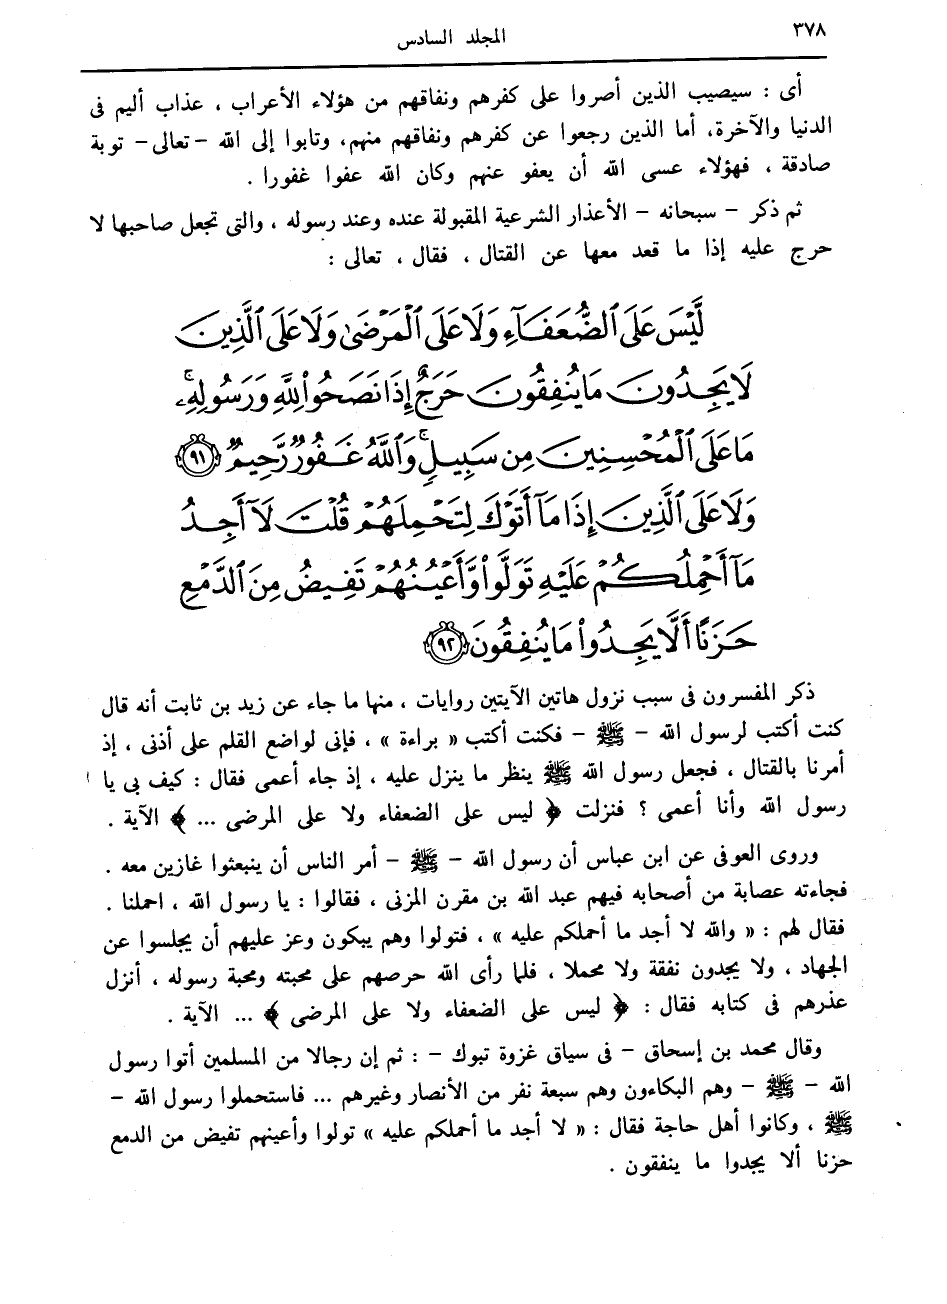 ٣٧٨
المجلد السادس
أى : سيصيب الذين أصروا على كفرهم ونفاقهم من هؤلاء الأعراب ، عذاب أليم فى
الدنيا والآخرة، أما الذين رجعوا عن كفرهم ونفاقهم منهم، وتابوا إلى الله -تعالى- توبة
صادقة ، فهؤلاء عسى الله أن يعفو عنهم وكان الله عفوا غفورا .
ثم ذكر - سبحانه - الأعذار الشرعية المقبولة عنده وعند رسوله ، والتى تجعل صاحبها لا
حرج عليه إذا ما قعد معها عن القتال ، فقال ، تعالى :
لَّيْسَ عَلَى ٱلضُّعَفَآءِ وَلَا عَلَى ٱلْمَرْضَىٰ وَلَا عَلَى ٱلَّذِينَ
لَا يَجِدُونَ مَا يُنفِقُونَ حَرَجٌ إِذَا نَصَحُوا۟ لِلَّهِ وَرَسُولِهِۦۚ
مَا عَلَى ٱلْمُحْسِنِينَ مِن سَبِيلٍۚ وَٱللَّهُ غَفُورٌ رَّحِيمٌ ﴿٩١﴾
وَلَا عَلَى ٱلَّذِينَ إِذَا مَآ أَتَوْكَ لِتَحْمِلَهُمْ قُلْتَ لَآ أَجِدُ
مَآ أَحْمِلُكُمْ عَلَيْهِ تَوَلَّوا۟ وَّأَعْيُنُهُمْ تَفِيضُ مِنَ ٱلدَّمْعِ
حَزَنًا أَلَّا يَجِدُوا۟ مَا يُنفِقُونَ ﴿٩٢﴾
ذكر المفسرون فى سبب نزول هاتين الآيتين روايات ، منها ما جاء عن زيد بن ثابت أنه قال
كنت أكتب لرسول الله - ﷺ - فكنت أكتب « براءة » ، فإنى لواضع القلم على أذنى ، إذ
أمرنا بالقتال ، فجعل رسول الله ﷺ ينظر ما ينزل عليه ، إذ جاء أعمى فقال : كيف بى يا
رسول الله وأنا أعمى ؟ فنزلت ﴿ ليس على الضعفاء ولا على المرضى ... ﴾ الآية .
وروى العوفى عن ابن عباس أن رسول الله - ﷺ - أمر الناس أن ينبعثوا غازين معه .
فجاءته عصابة من أصحابه فيهم عبد الله بن مقرن المزنى ، فقالوا : يا رسول الله ، احملنا .
فقال لهم : « والله لا أجد ما أحملكم عليه » ، فتولوا وهم يبكون وعز عليهم أن يجلسوا عن
الجهاد ، ولا يجدون نفقة ولا محملا ، فلما رأى الله حرصهم على محبته ومحبة رسوله ، أنزل
عذرهم فى كتابه فقال : ﴿ ليس على الضعفاء ولا على المرضى ﴾ ... الآية .
وقال محمد بن إسحاق - فى سياق غزوة تبوك - : ثم إن رجالا من المسلمين أتوا رسول
الله - ﷺ - وهم البكاءون وهم سبعة نفر من الأنصار وغيرهم ... فاستحملوا رسول الله -
ﷺ ، وكانوا أهل حاجة فقال : « لا أجد ما أحملكم عليه » تولوا وأعينهم تفيض من الدمع
حزنا ألا يجدوا ما ينفقون .